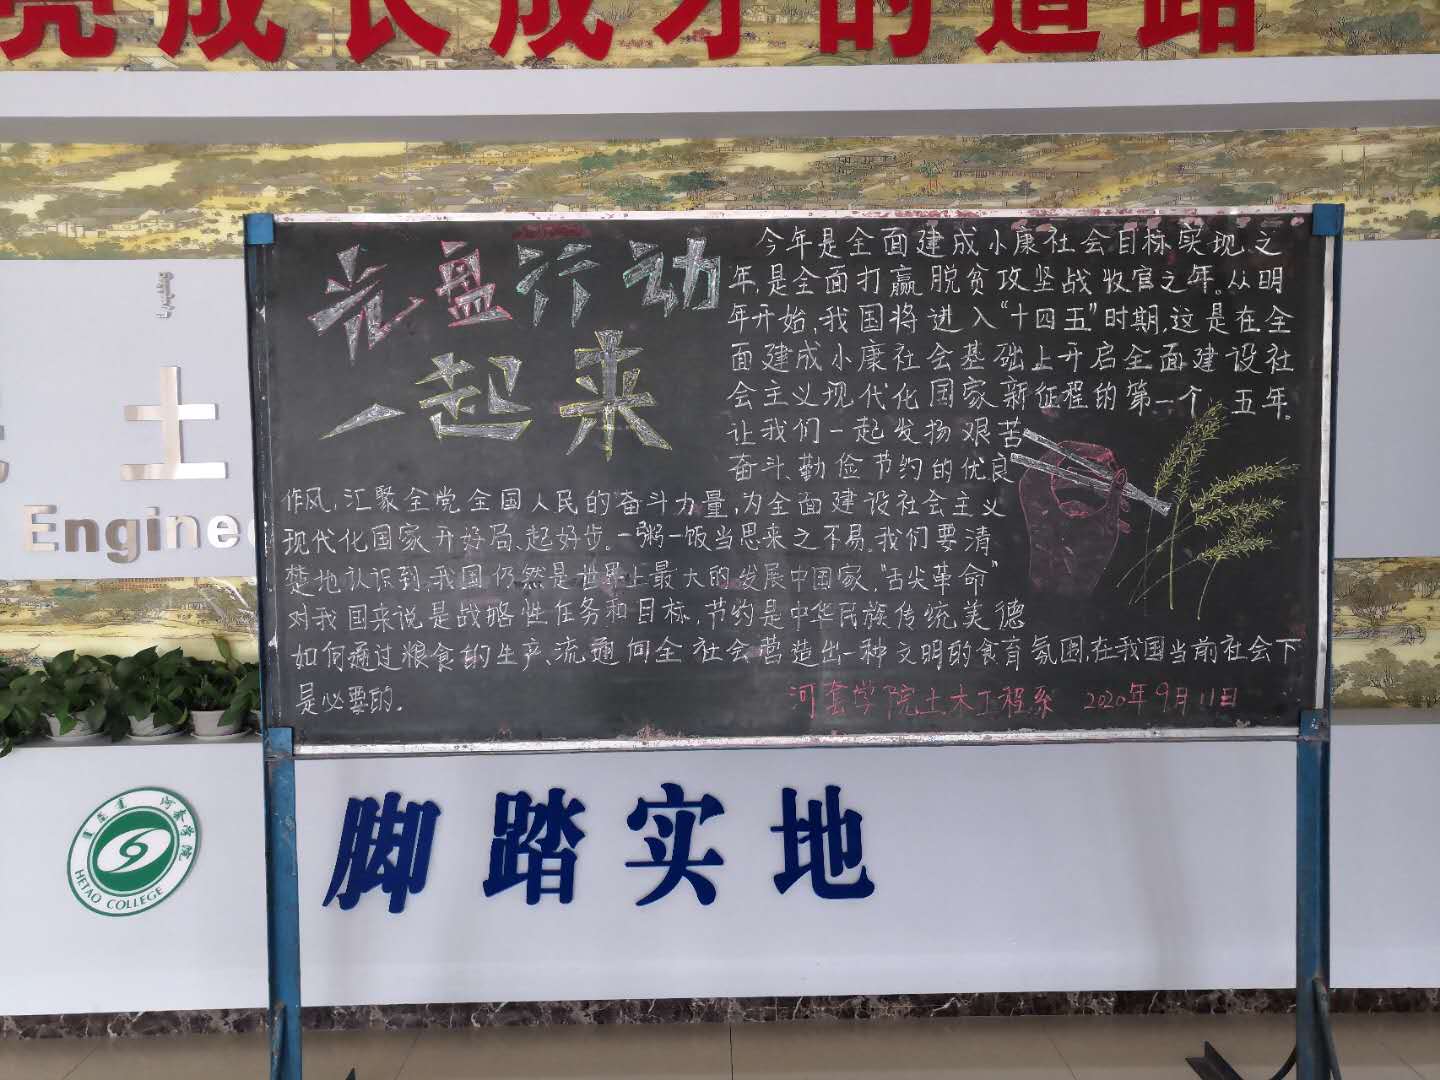 亮成长成才的道路
土
Engine
光盘行动
一起来
今年是全面建成小康社会目标实现之
年,是全面打赢脱贫攻坚战收官之年。从明
年开始,我国将进入“十四五”时期,这是在全
面建成小康社会基础上开启全面建设社
会主义现代化国家新征程的第一个 五年。
让我们一起发扬艰苦
奋斗、勤俭节约的优良
作风,汇聚全党全国人民的奋斗力量,为全面建设社会主义
现代化国家开好局、起好步。一粥一饭当思来之不易。我们要清
楚地认识到,我国仍然是世界上最大的发展中国家,“舌尖革命”
对我国来说是战略性任务和目标,节约是中华民族传统美德
如何通过粮食的生产、流通向全社会营造出一种文明的食育氛围,在我国当前社会下
是必要的。
河套学院土木工程系 2020年9月11日
河套学院
HETAO COLLEGE
脚踏实地